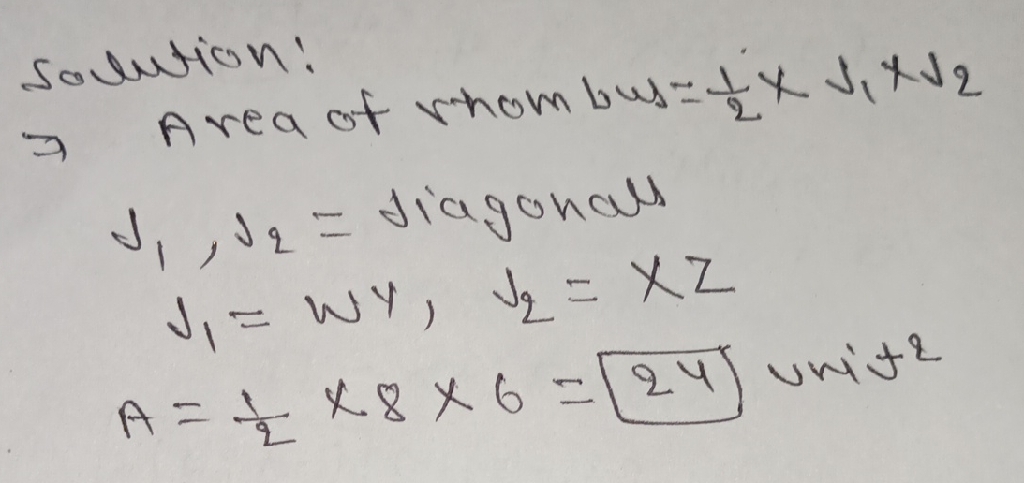 Solution:
→ Area of rhombus = 1/2 × d₁ × d₂
d₁, d₂ = diagonals
d₁ = WY, d₂ = XZ
A = 1/2 × 8 × 6 = 24 unit²